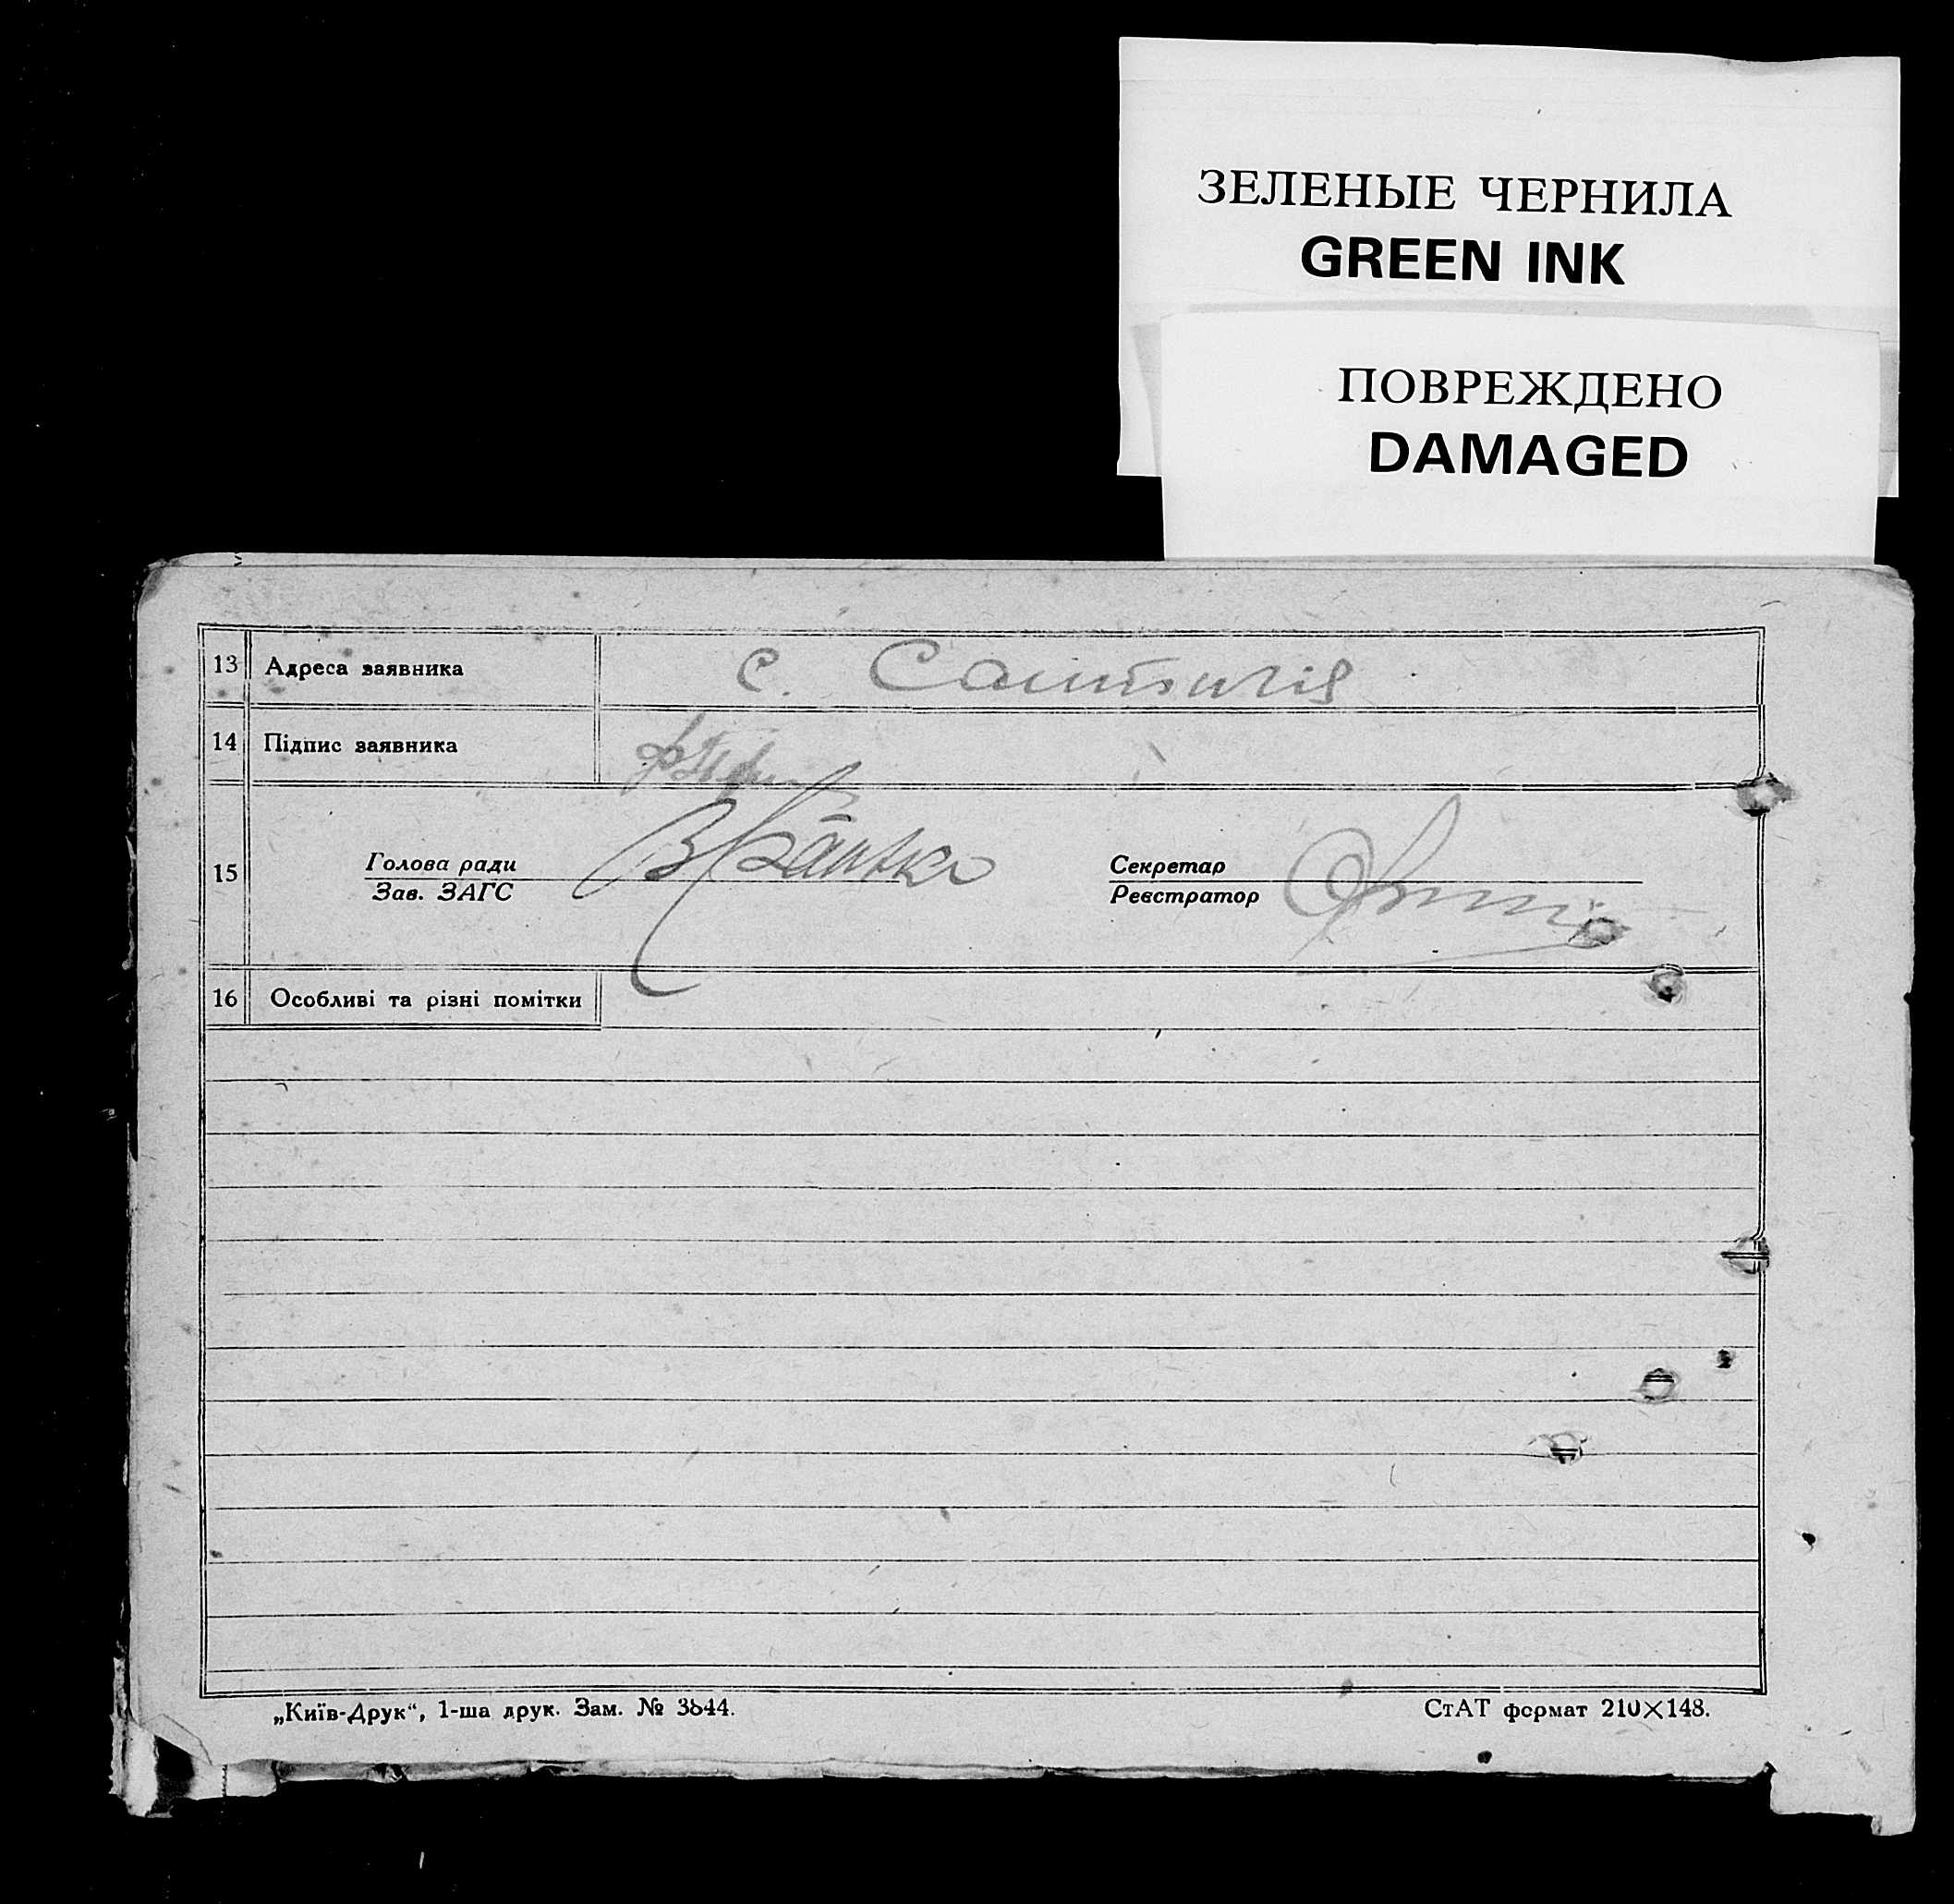 ЗЕЛЕНЫЕ ЧЕРНИЛА
GREEN INK
ПОВРЕЖДЕНО
DAMAGED
13 Адреса заявника с.
14 Підпис заявника
15 Голова ради Секретар
Зав. ЗАГС Реєстратор
16 Особливі та різні помітки
„Київ-Друк“, 1-ша друк. Зам. № 3844. СтАТ формат 210×148.